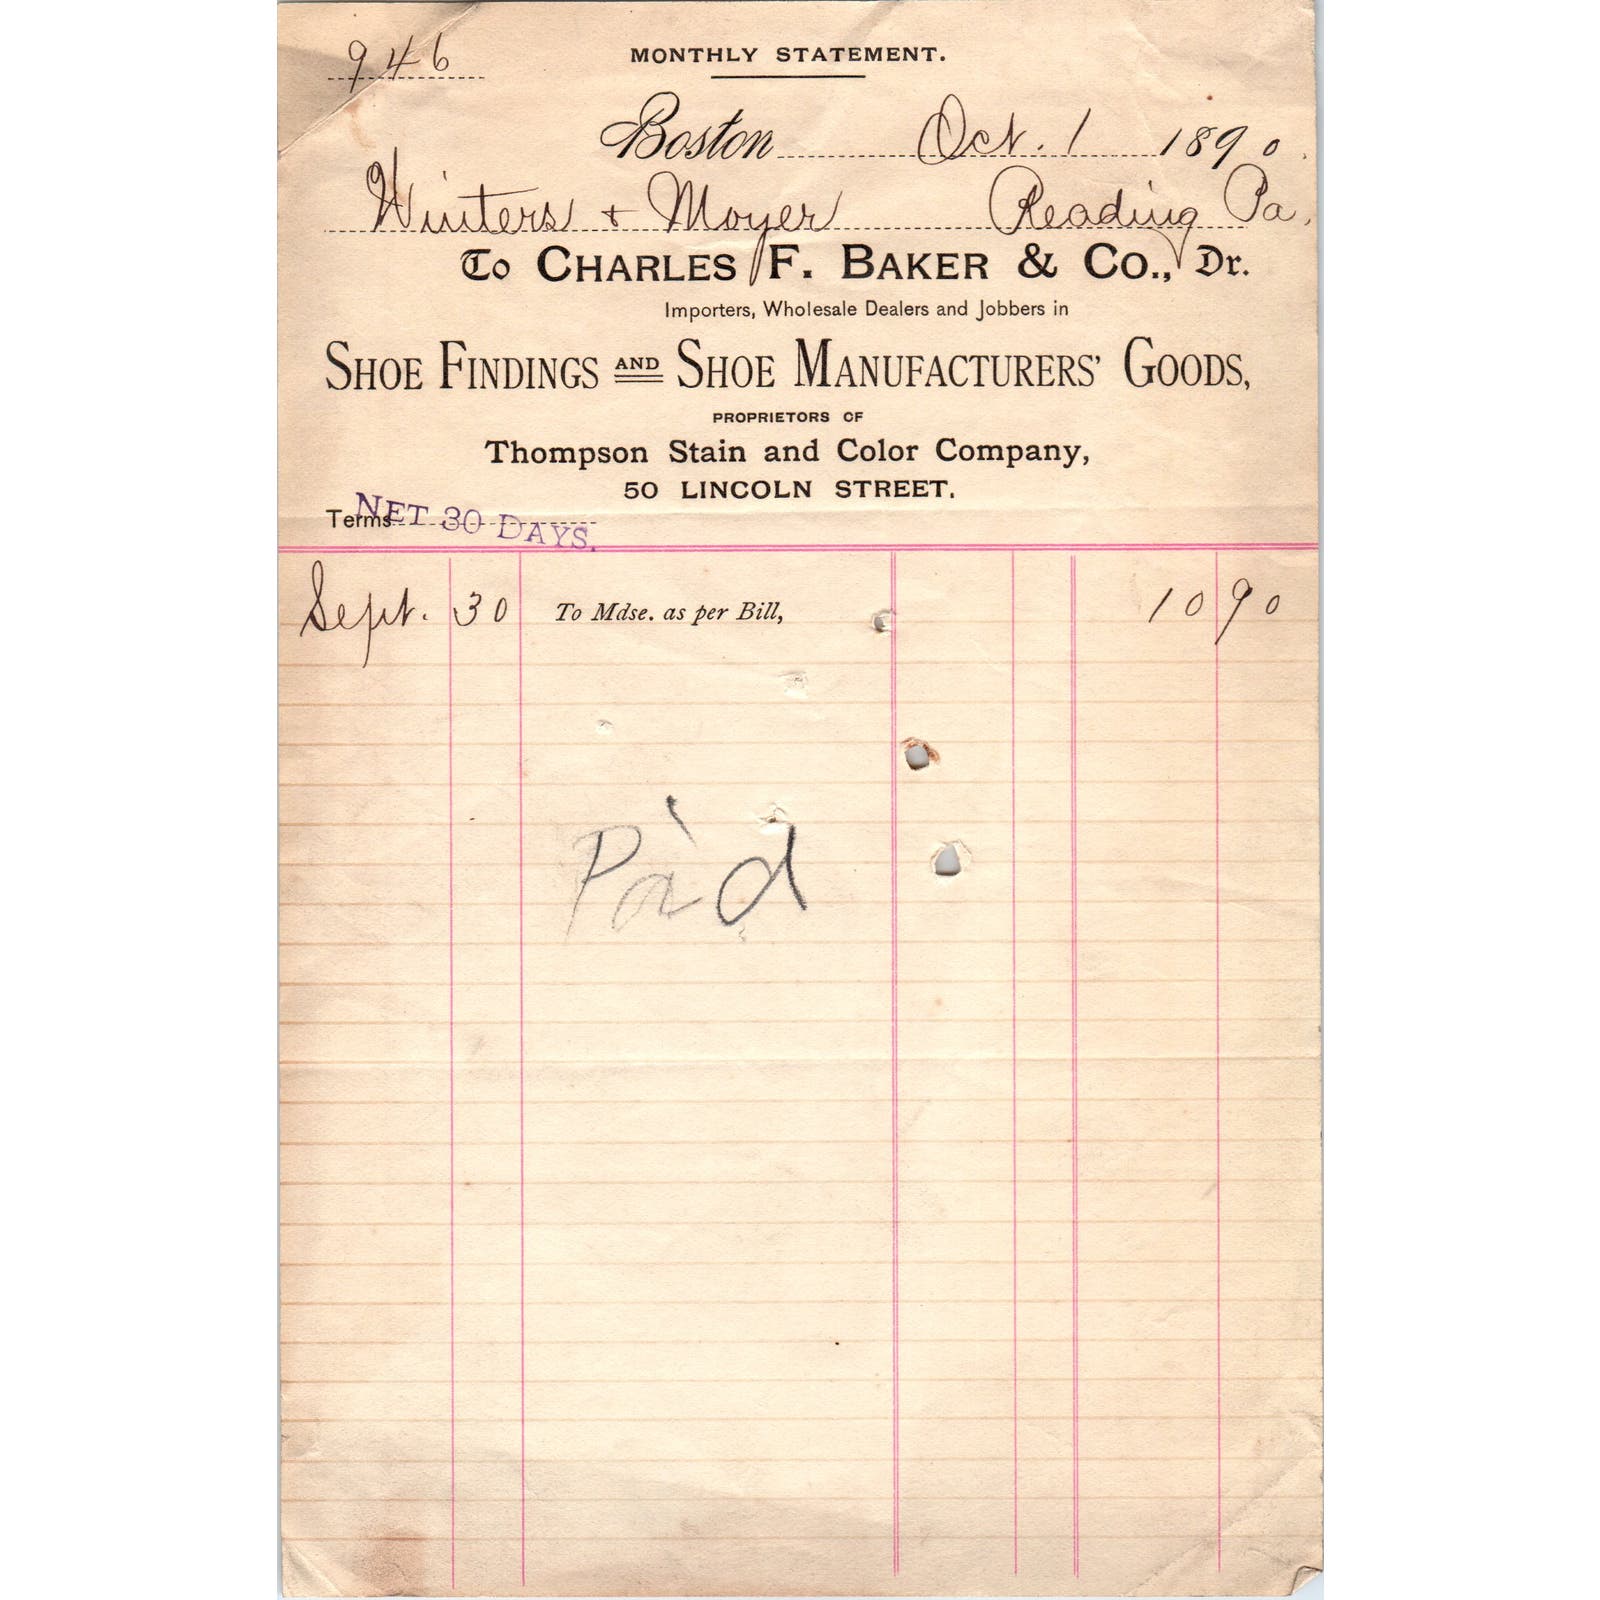 946
MONTHLY STATEMENT.
Boston Oct. 1 1890.
Winters + Moyer Reading Pa.
To CHARLES F. BAKER & CO., Dr.
Importers, Wholesale Dealers and Jobbers in
SHOE FINDINGS AND SHOE MANUFACTURERS' GOODS,
PROPRIETORS OF
Thompson Stain and Color Company,
50 LINCOLN STREET.
Terms NET 30 DAYS.
Sept. 30 To Mdse. as per Bill, 10 90
Pa'd